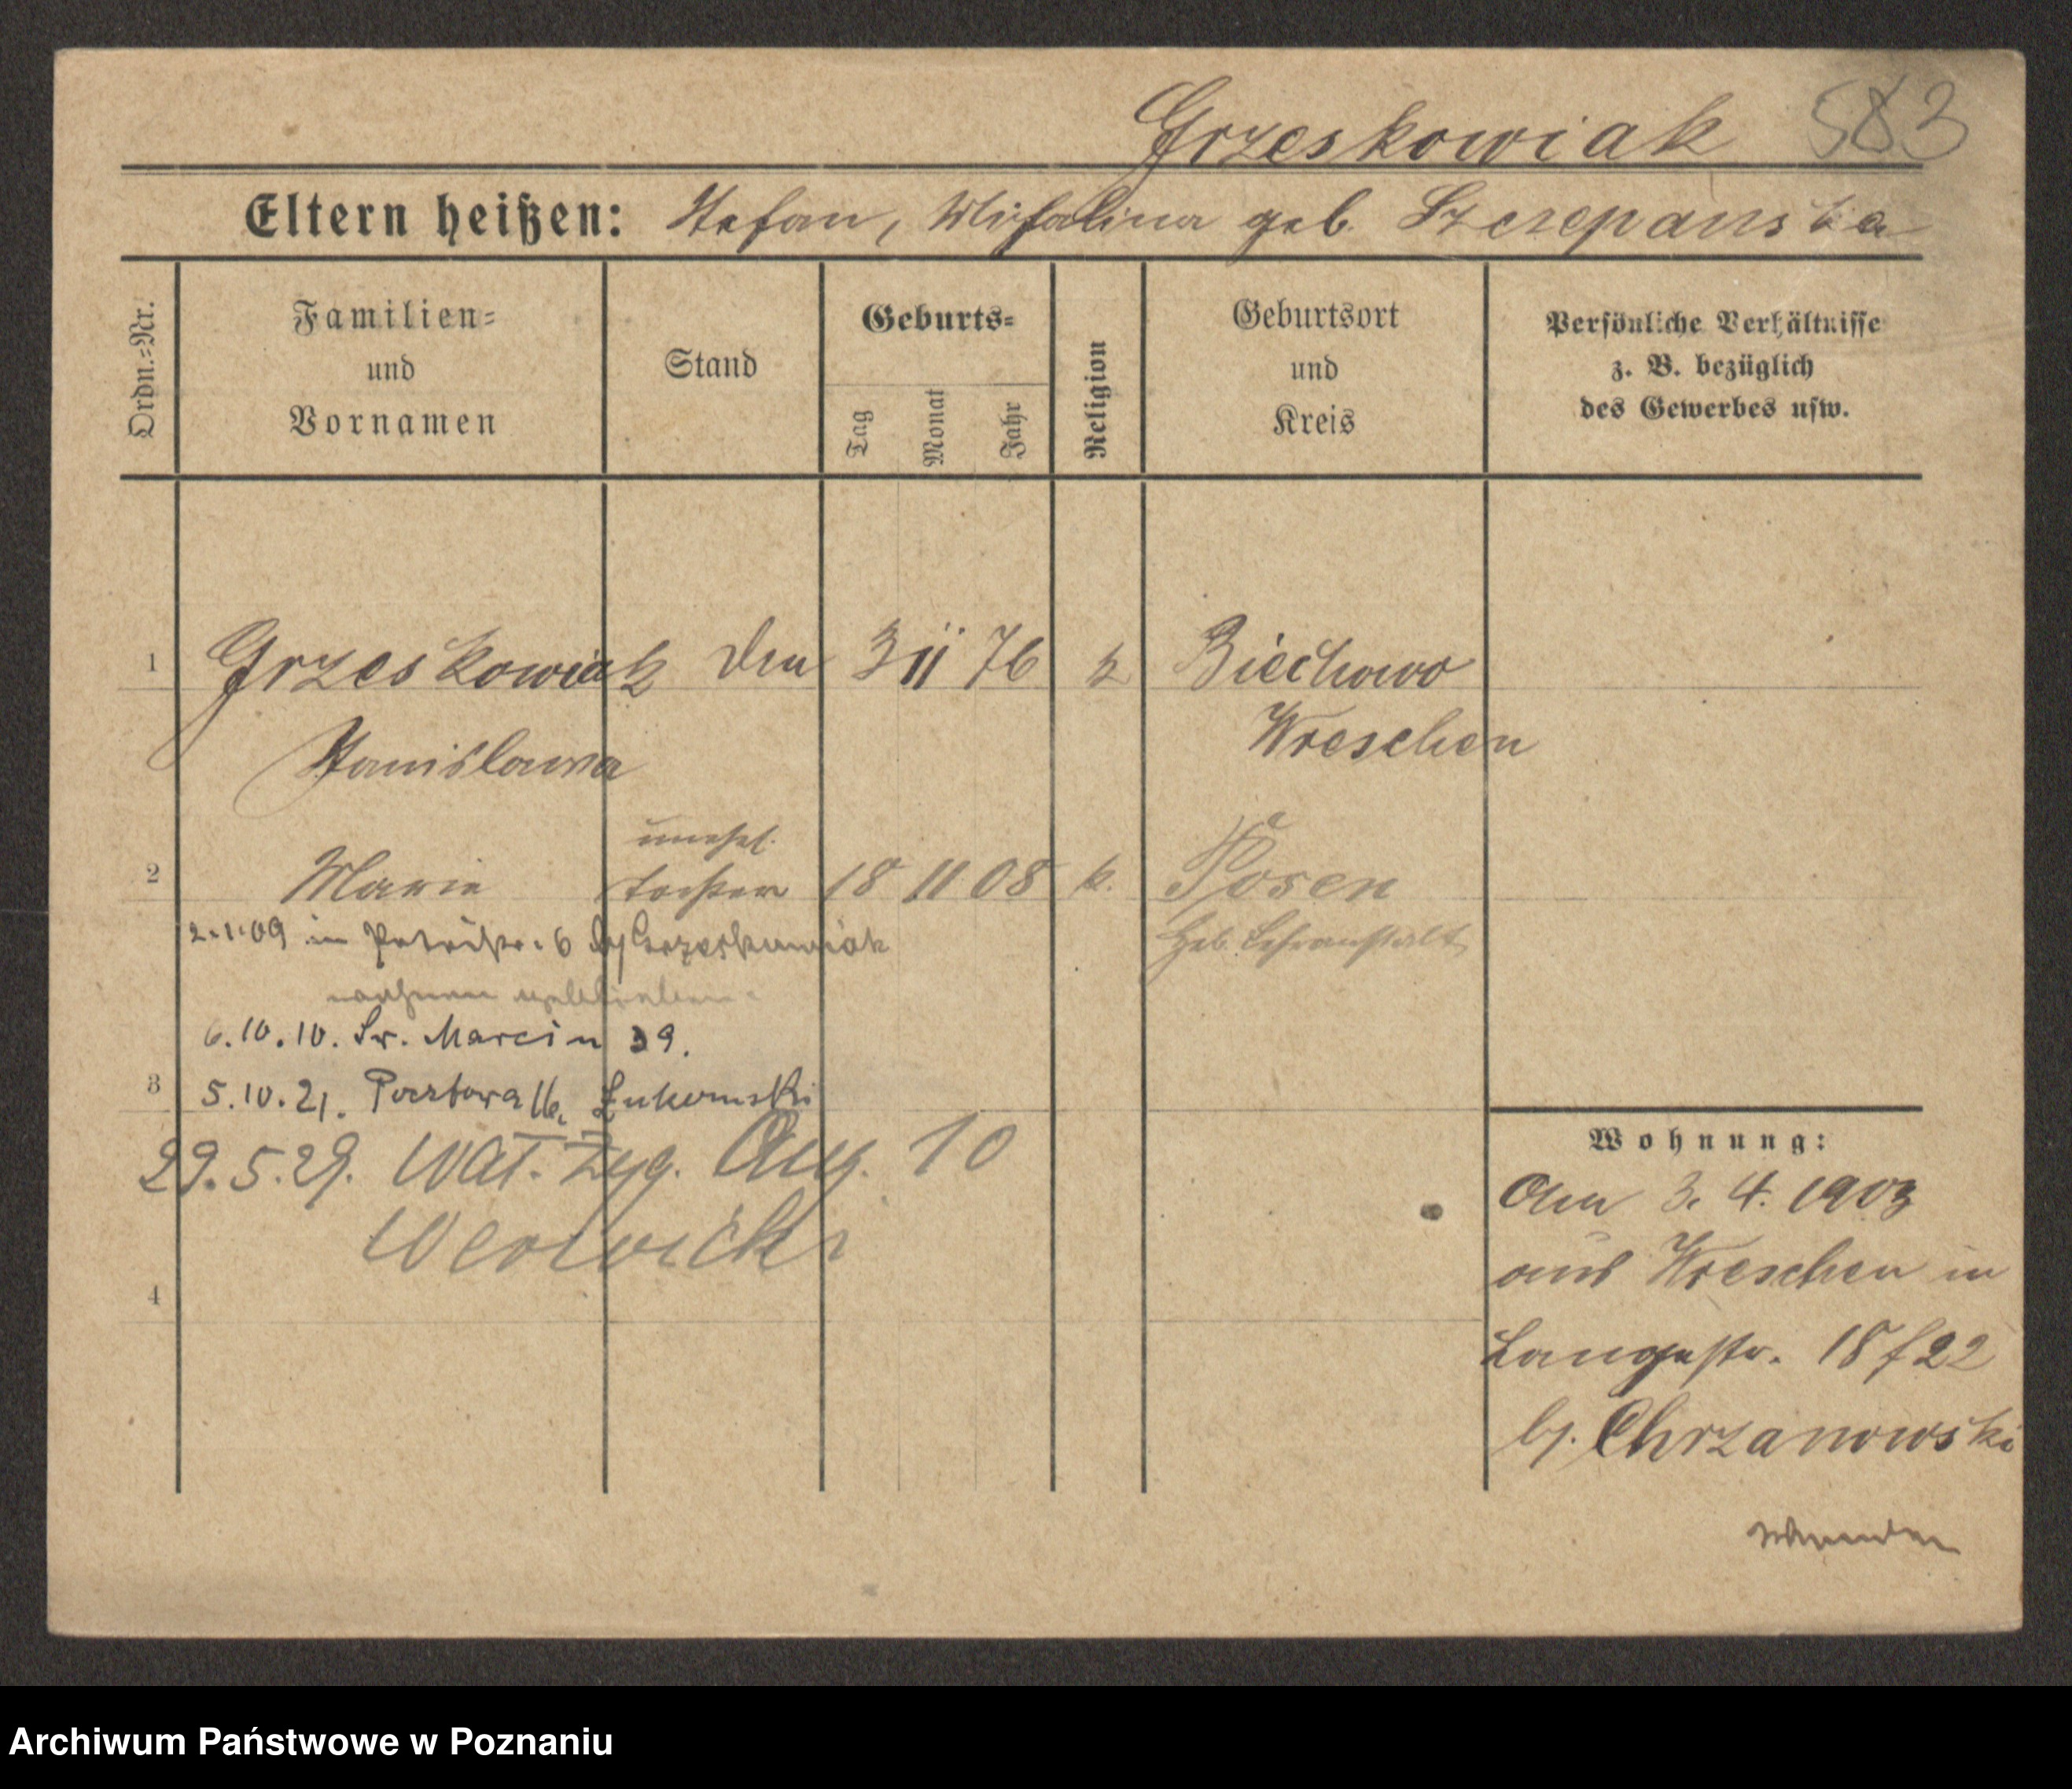 Grzeskowiak 583
Eltern heißen: Stefan, Michalina geb. Szczepanska
Ordn.=Nr.
Familien=
und
Vornamen
Stand
Geburts=
Tag
Monat
Jahr
Religion
Geburtsort
und
Kreis
Persönliche Verhältnisse
z. B. bezüglich
des Gewerbes usw.
1 Grzeskowiak 3 11 76 k Biechowo
Stanislawa Wreschen
unehel.
2 Marie Tochter 18 11 08 k. Posen
Heb. Lehranstalt
2.1.09 in Petristr. 6 bj Grzeskowiak
6.10.10. Św. Marcin 39.
3 5.10.21. Pocztowa Łukomski
29.5.29. Wał. Zyg. Aug. 10
4
Wohnung:
Am 3. 4. 1903
aus Wreschen in
Langestr. 18 f 22
bj. Chrzanowski
Archiwum Państwowe w Poznaniu